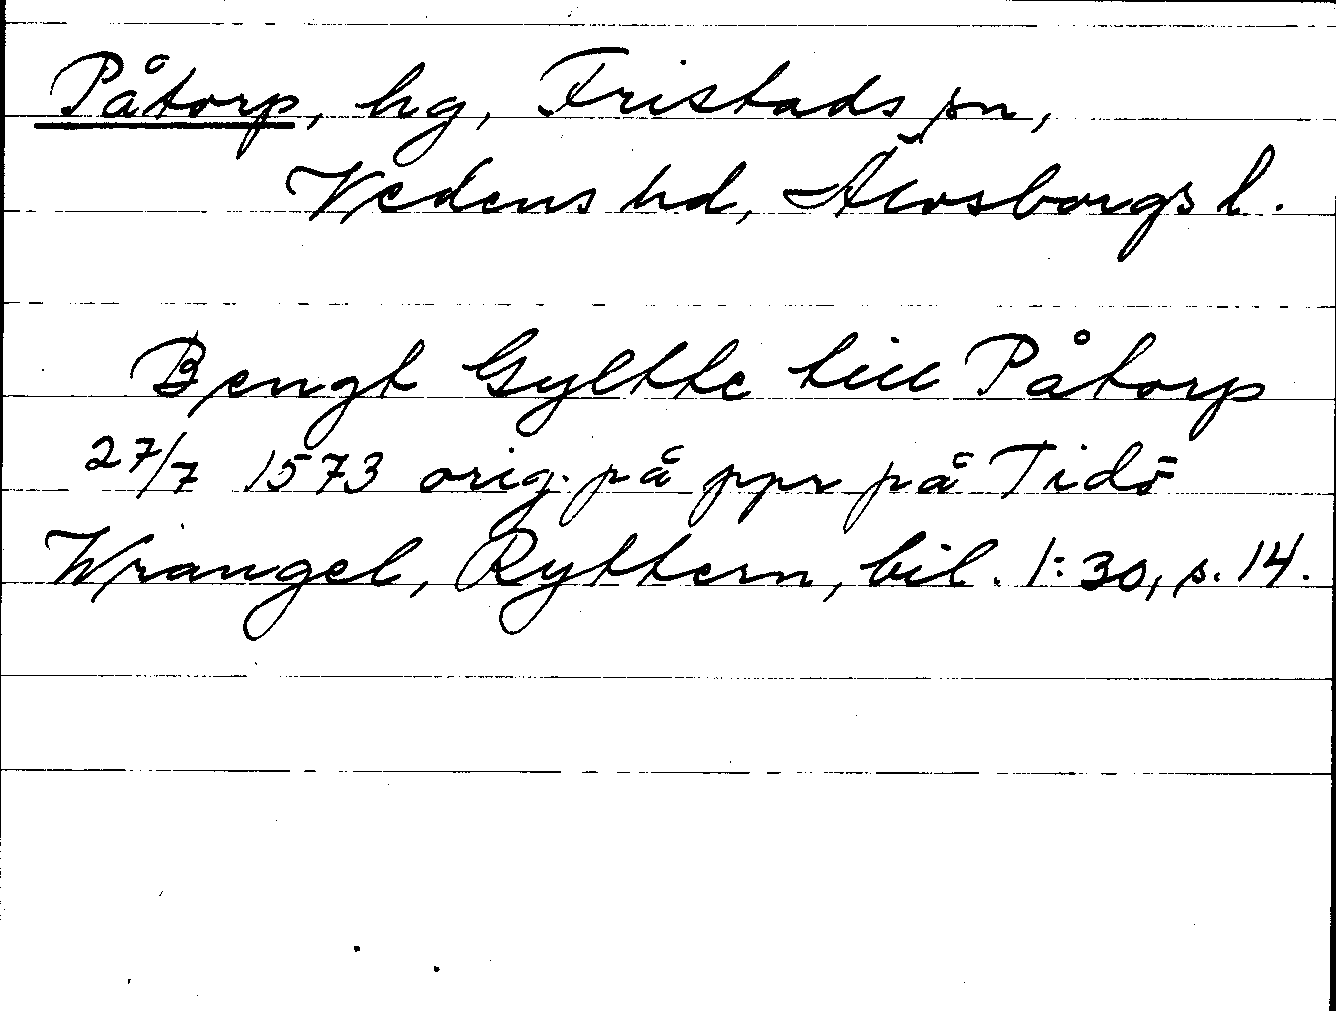 Påtorp, hg, Fristads sn,
Vedens hd, Älvsborgs l.
Bengt Gyltte till Påtorp
27/7 1573 orig. på ppr på Tidö
Wrangel, Ryttern, bil. 1:30, s. 14.